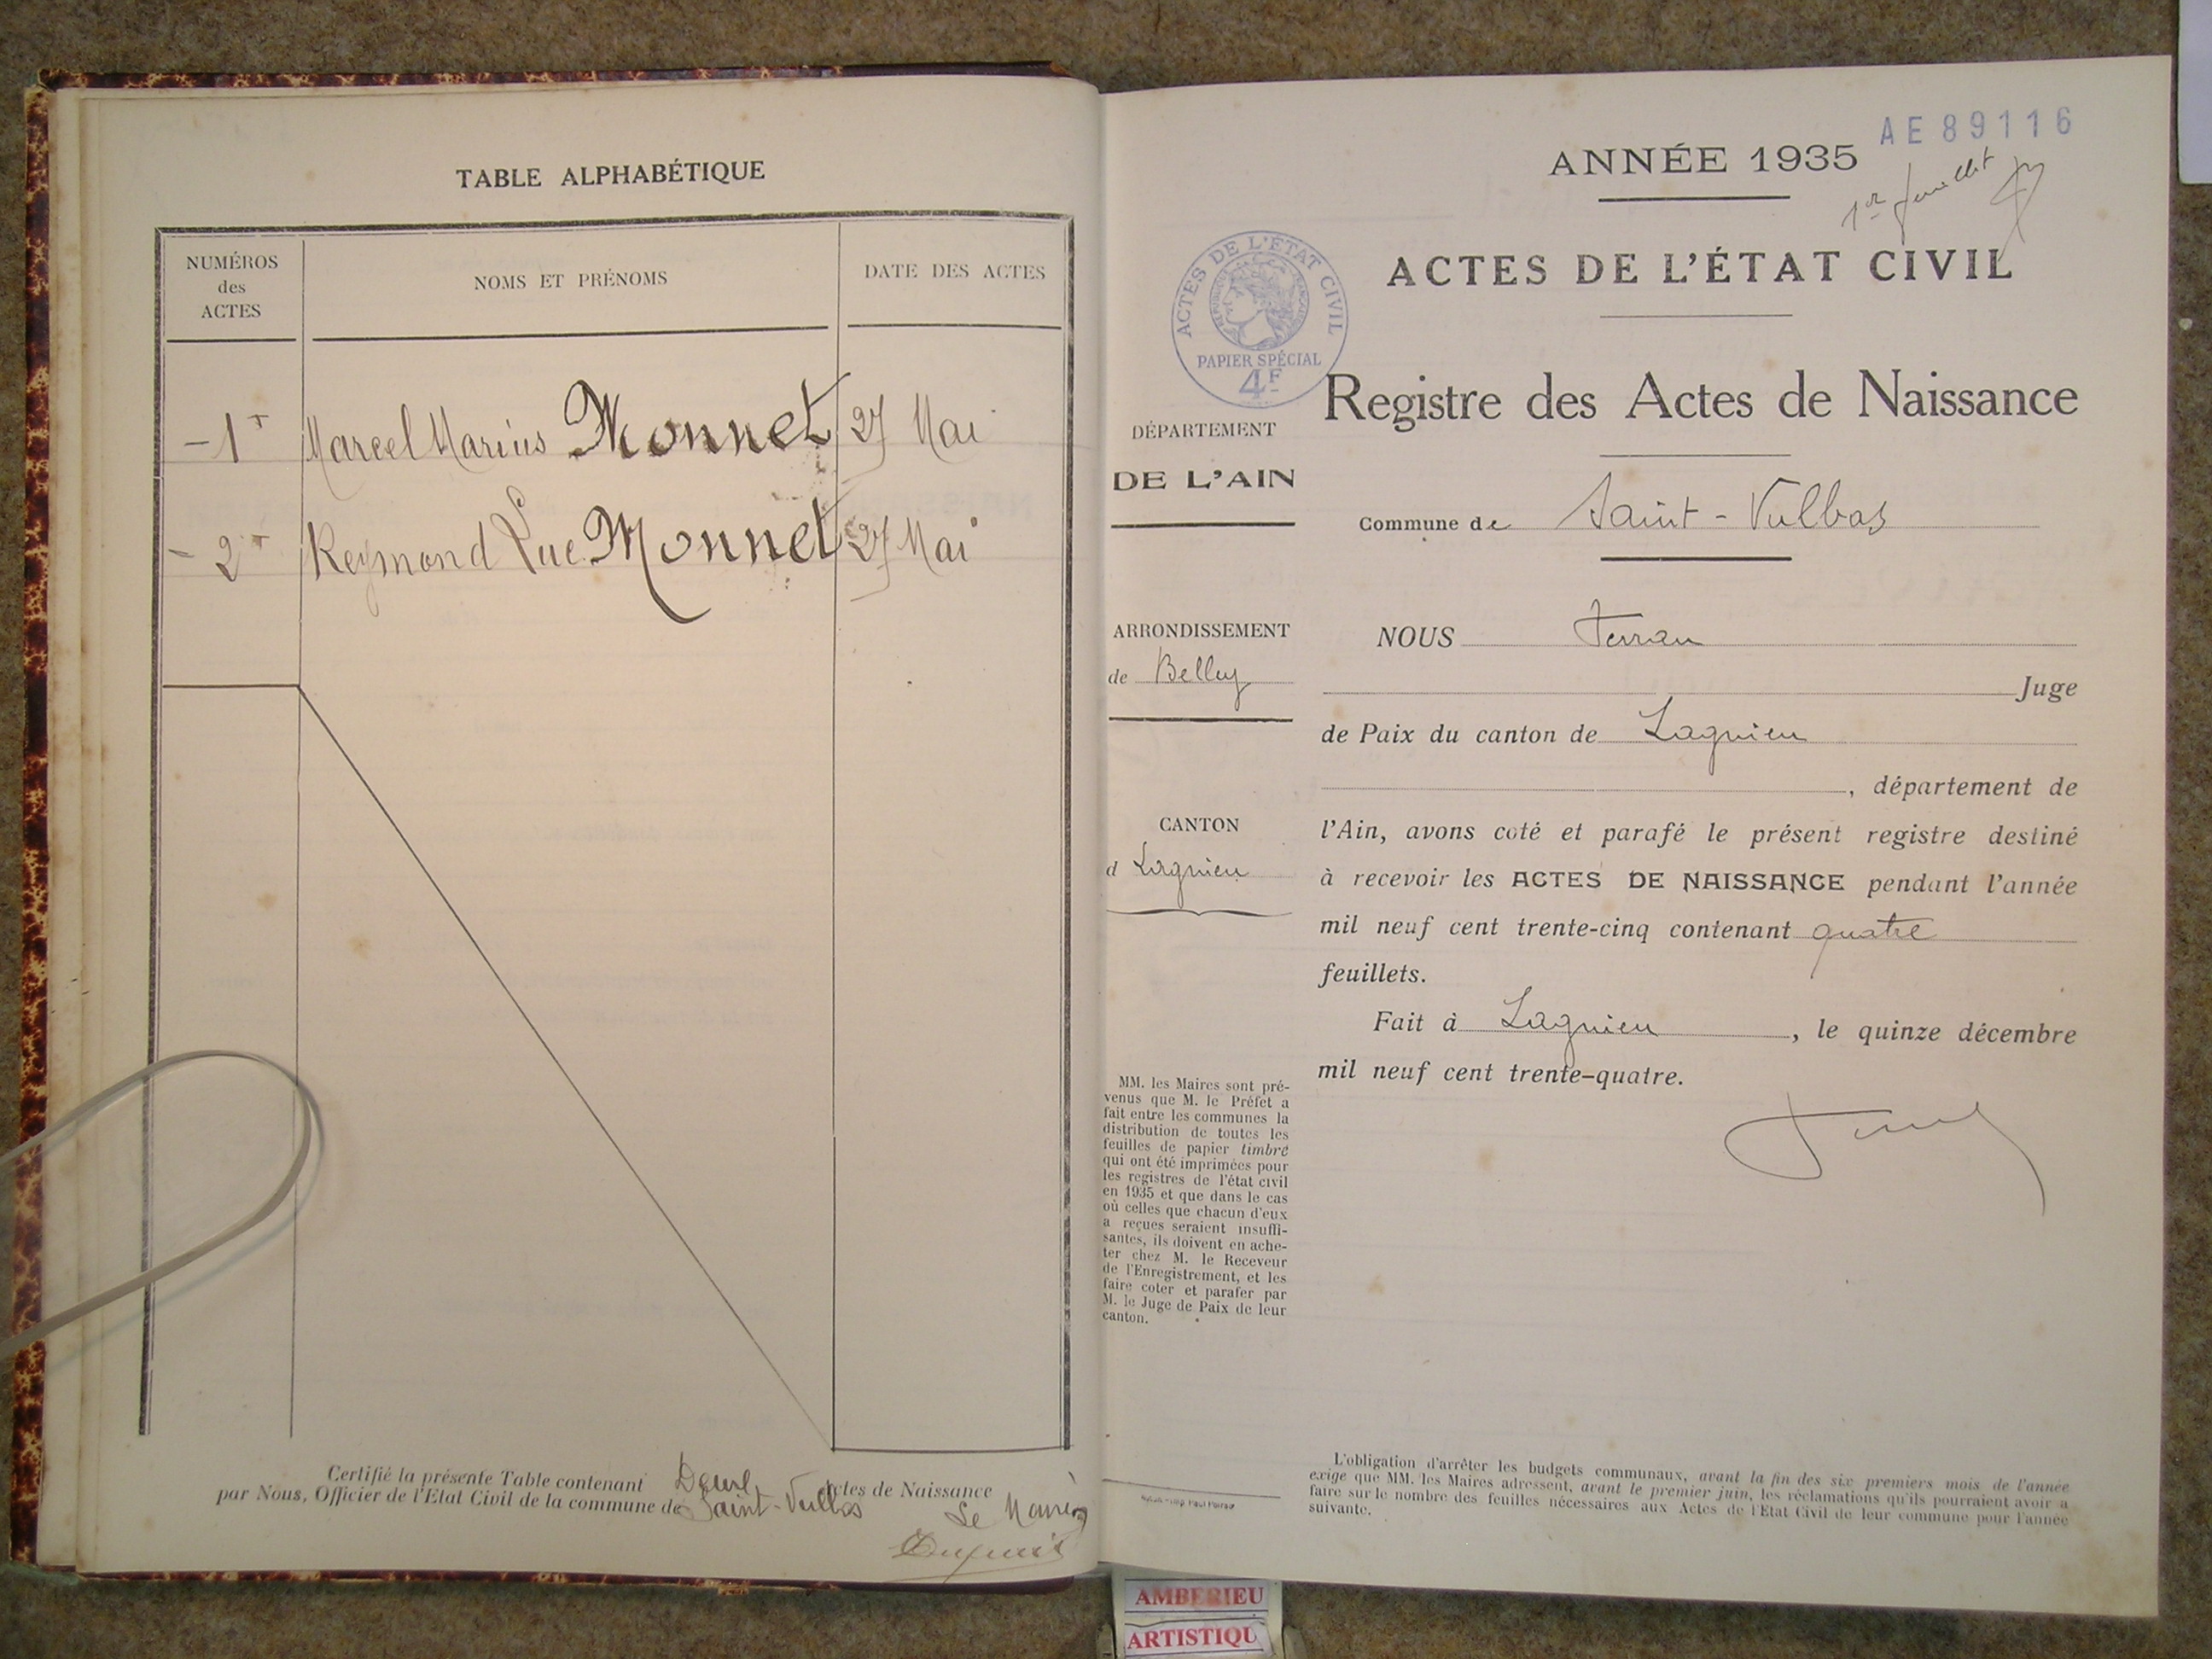 TABLE ALPHABÉTIQUE
NUMÉROS
des
ACTES
NOMS ET PRÉNOMS
DATE DES ACTES
1 Marcel Marius Monnet 27 Mai
2 Reymond Luc Monnet 27 Mai
Certifié la présente Table contenant Deux Actes de Naissance
par Nous, Officier de l'Etat Civil de la commune de Saint-Vulbas
Le Maire
AE 89116
ANNÉE 1935
1er feuillet
ACTES DE L'ÉTAT CIVIL
ACTES DE L'ÉTAT CIVIL
RÉPUBLIQUE FRANÇAISE
PAPIER SPÉCIAL
4F
Registre des Actes de Naissance
DÉPARTEMENT
DE L'AIN
Commune de Saint-Vulbas
ARRONDISSEMENT
de Belley
CANTON
d Lagnieu
MM. les Maires sont pré-
venus que M. le Préfet a
fait entre les communes la
distribution de toutes les
feuilles de papier timbré
qui ont été imprimées pour
les registres de l'état civil
en 1935 et que dans le cas
où celles que chacun d'eux
a reçues seraient insuffi-
santes, ils doivent en ache-
ter chez M. le Receveur
de l'Enregistrement, et les
faire coter et parafer par
M. le Juge de Paix de leur
canton.
NOUS Ferran
Juge
de Paix du canton de Lagnieu
, département de
l'Ain, avons coté et parafé le présent registre destiné
à recevoir les ACTES DE NAISSANCE pendant l'année
mil neuf cent trente-cinq contenant quatre
feuillets.
Fait à Lagnieu, le quinze décembre
mil neuf cent trente-quatre.
L'obligation d'arrêter les budgets communaux, avant la fin des six premiers mois de l'année
exige que MM. les Maires adressent, avant le premier juin, les réclamations qu'ils pourraient avoir a
faire sur le nombre des feuilles nécessaires aux Actes de l'Etat Civil de leur commune pour l'année
suivante.
AMBERIEU
ARTISTIQU